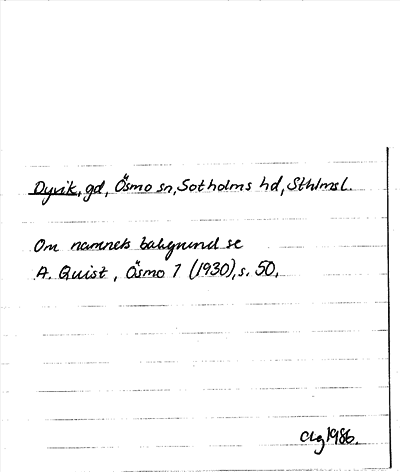 Dyvik, gd, Ösmo sn, Sotholms hd, Sthlms l.
Om namnets bakgrund se
A. Quist, Ösmo 1 (1930), s. 50.
1986.